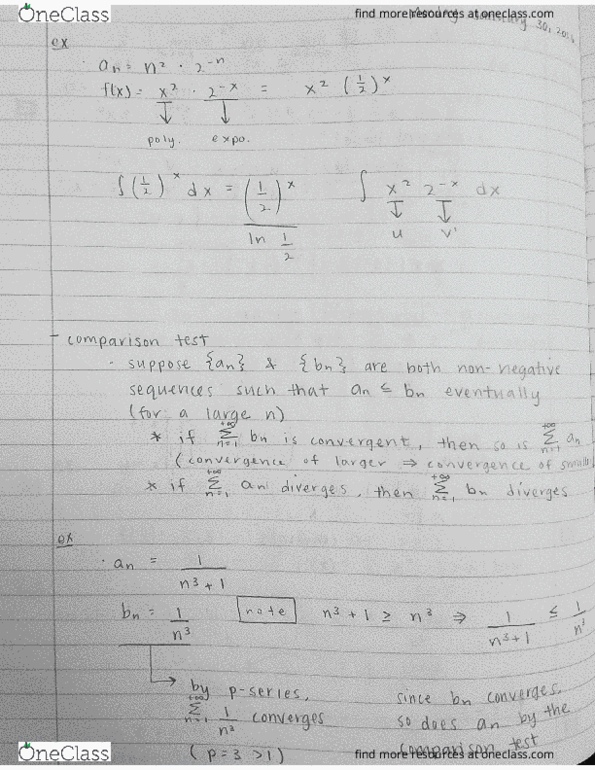 OneClass
find more resources at oneclass.com
30, 2014
ex
· an = n² · 2^-n
f(x) = x² · 2^-x = x² (1/2)^x
↓ ↓
poly. expo.
∫ (1/2)^x dx = (1/2)^x / ln 1/2
∫ x² 2^-x dx
↓ ↓
u v'
- comparison test
· suppose {an} & {bn} are both non-negative
sequences such that an ≤ bn eventually
(for a large n)
* if +∞ Σ n=1 bn is convergent, then so is +∞ Σ n=1 an
(convergence of larger ⇒ convergence of small
* if +∞ Σ n=1 an diverges, then +∞ Σ n=1 bn diverges
ex
· an = 1 / n³ + 1
bn = 1 / n³ note n³ + 1 ≥ n³ ⇒ 1 / n³ + 1 ≤ 1 / n³
by p-series, since bn converges,
+∞ Σ n=1 1 / n³ converges so does an by the
(p = 3 > 1) comparison test
OneClass
find more resources at oneclass.com